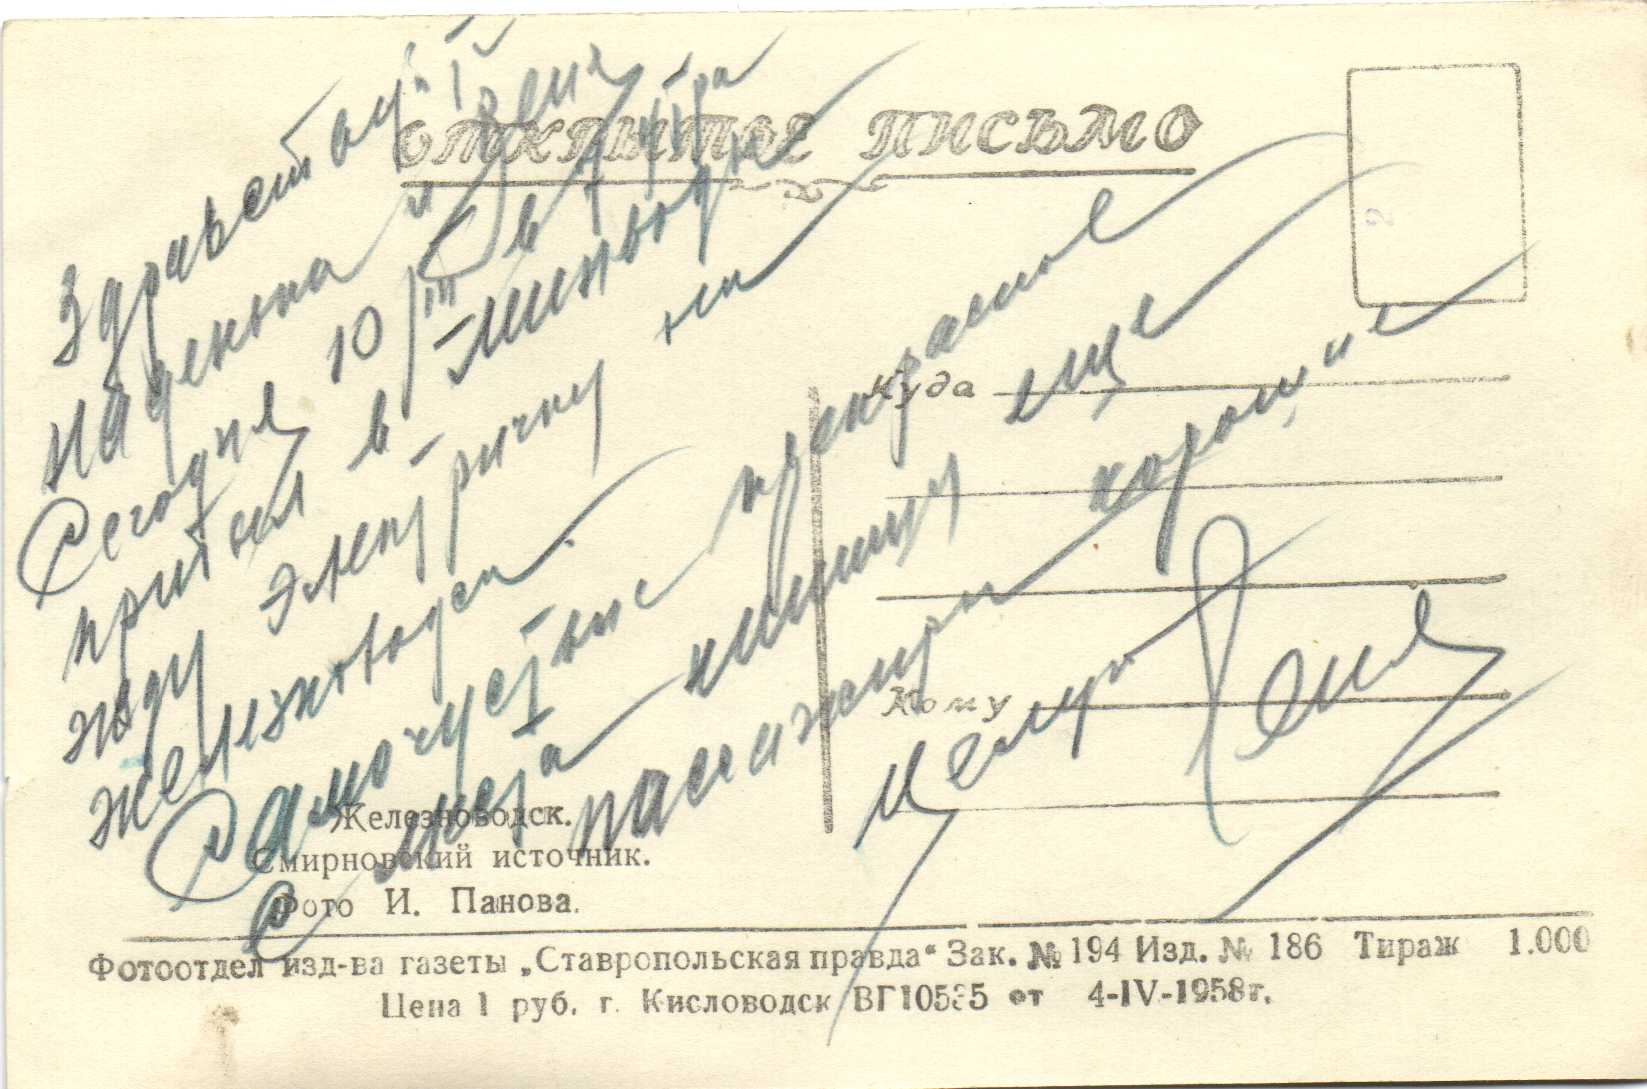 открытое письмо
Здравствуй
Наденька и
Сегодня 10/III в 7 утра
приехал в Минводы
жду электричку на
Железноводск.
Самочувствие прекрасное
места нижние еще
пассажиры хорошие
Целую Геня
Куда
Кому
Железноводск.
Смирновский источник.
Фото И. Панова.
Фотоотдел изд-ва газеты „Ставропольская правда“ Зак. № 194 Изд. № 186 Тираж 1.000
Цена 1 руб. г. Кисловодск ВГ10535 от 4-IV-1958г.